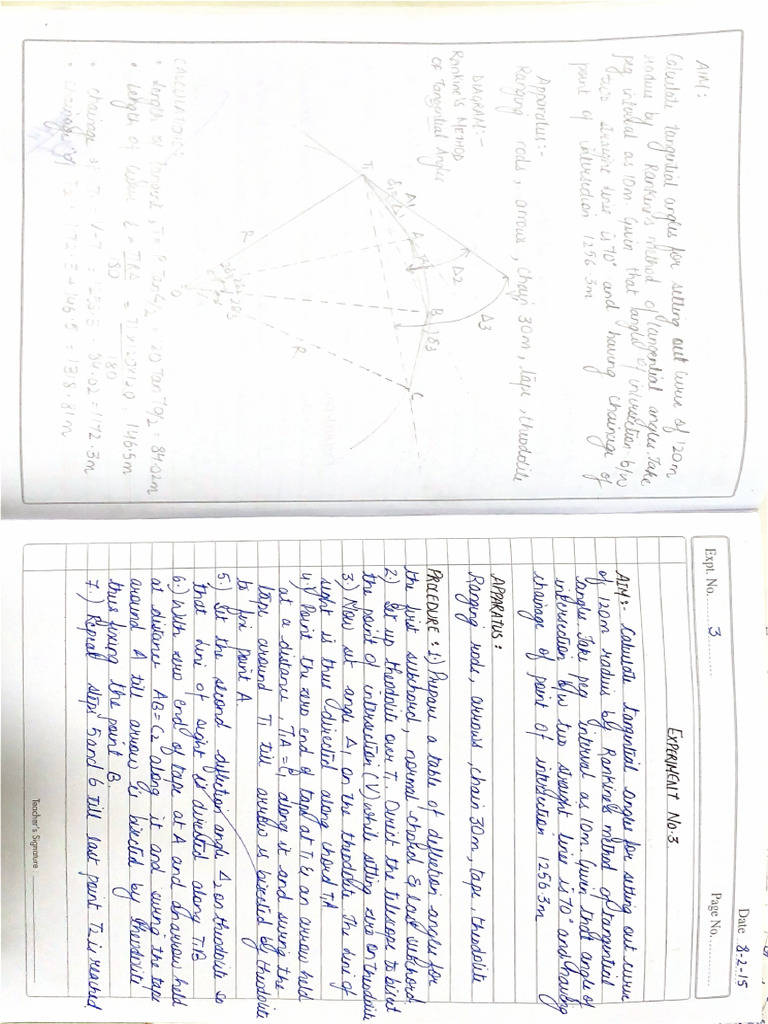 AIM:
Calculate tangential angles for setting out curve of 120m
radius by Rankine's method of tangential angles. Take
peg interval as 10m. Given that angle of intersection b/w
two straight line is 70° and having chainage of
point of intersection 1256.3m
Apparatus:-
Ranging rods, arrows, chain 30m, tape, theodolite
DIAGRAM:-
RANKINE'S METHOD
OF Tangential Angles
T1
A1
A
B
C
Δ2
Δ3
δ3
R
R
O
CALCULATIONS:
• Length of tangent, T =
= 84.02m
• Length of curve l = πRΔ/180 =
/180 = 146.5m
• Chainage of T1 = V-T = 1256.3 - 84.02 = 1172.3m
• Chainage of T2 = 1172.3 + 146.5 = 1318.81m
Date 8-2-15
Expt. No. 3
Page No.
EXPERIMENT No.3
AIM:- Calculate tangential angles for setting out curve
of 120m radius by Rankine's method of tangential
angles. Take peg interval as 10m. Given that angle of
intersection b/w two straight line is 70° and having
chainage of point of intersection 1256.3m
APPARATUS:
Ranging rods, arrows, chain 30m, tape, theodolite
PROCEDURE: 1) Prepare a table of deflection angles for
the first subchord, normal chord & last subchord.
2.) Set up theodolite over T1. Direct the telescope to bisect
the point of intersection (V) while setting zero on theodolite
3.) Now set angle Δ1 on the theodolite. The line of
sight is thus directed along chord T1A
4.) Point the zero end of tape at T1 & an arrow held
at a distance, T1A = C1 along it and swing the
tape around T1 till arrow is bisected by theodolite
to fix point A.
5.) Set the second deflection angle Δ2 on theodolite so
that line of sight is directed along T1B
6.) With zero end of tape at A and an arrow held
at distance AB = C2 along it and swing the tape
around A till arrow is bisected by theodolite
thus fixing the point B.
7.) Repeat steps 5 and 6 till last point T2 is reached
Teacher's Signature